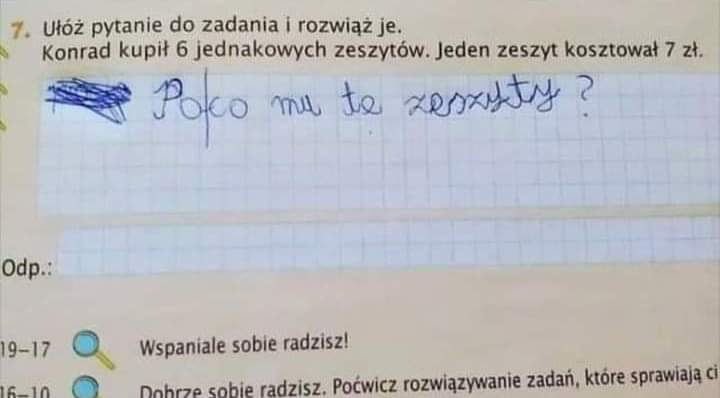 7. Ułóż pytanie do zadania i rozwiąż je.
Konrad kupił 6 jednakowych zeszytów. Jeden zeszyt kosztował 7 zł.
Po co mu te zeszyty?
Odp.:
19–17 Wspaniale sobie radzisz!
16–10 Dobrze sobie radzisz. Poćwicz rozwiązywanie zadań, które sprawiają ci